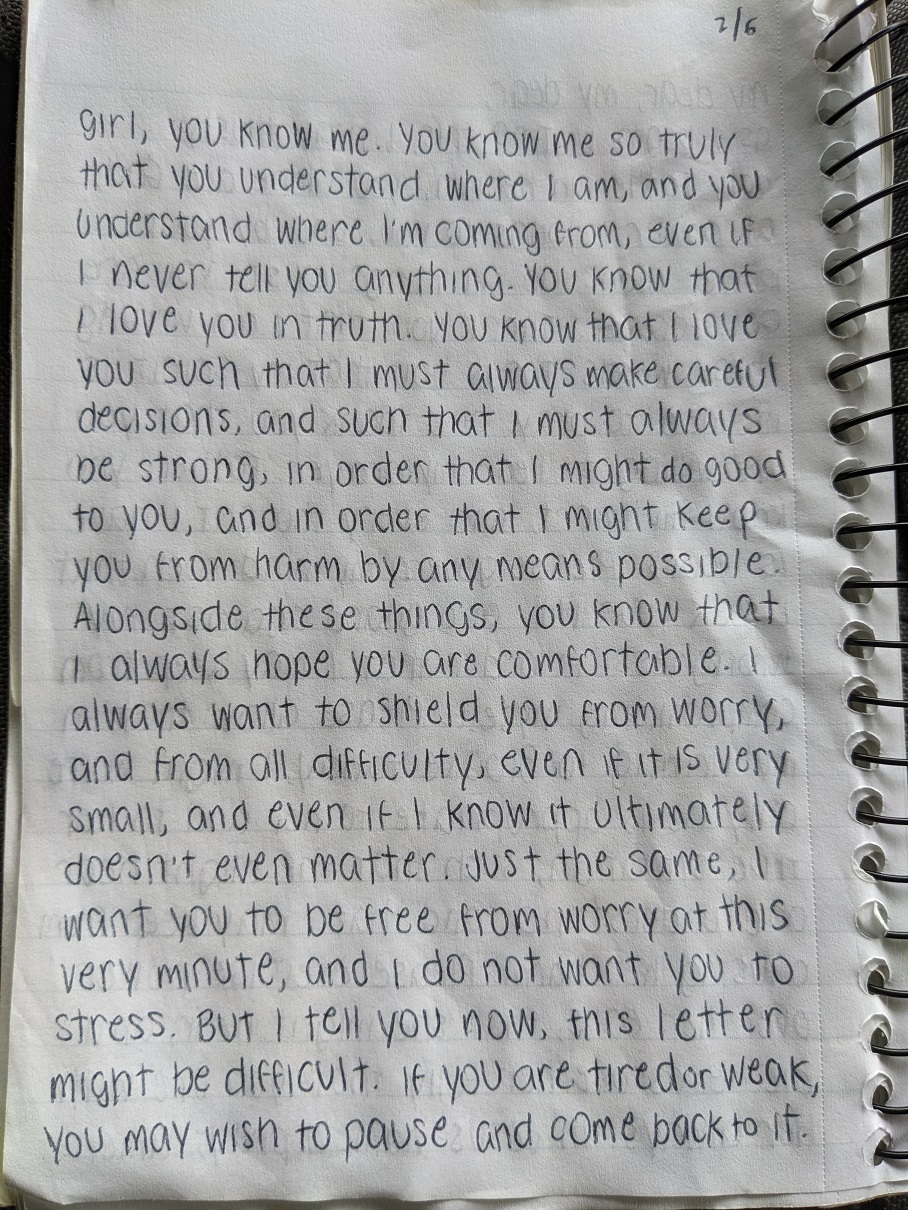 2/6
girl, you know me. You know me so truly
that you understand where I am, and you
understand where I'm coming from, even if
I never tell you anything. You know that
I love you in truth. You know that I love
you such that I must always make careful
decisions, and such that I must always
be strong, in order that I might do good
to you, and in order that I might keep
you from harm by any means possible.
Alongside these things, you know that
I always hope you are comfortable. I
always want to shield you from worry,
and from all difficulty, even if it is very
small, and even if I know it ultimately
doesn't even matter. Just the same, I
want you to be free from worry at this
very minute, and I do not want you to
stress. But I tell you now, this letter
might be difficult. If you are tired or weak,
you may wish to pause and come back to it.